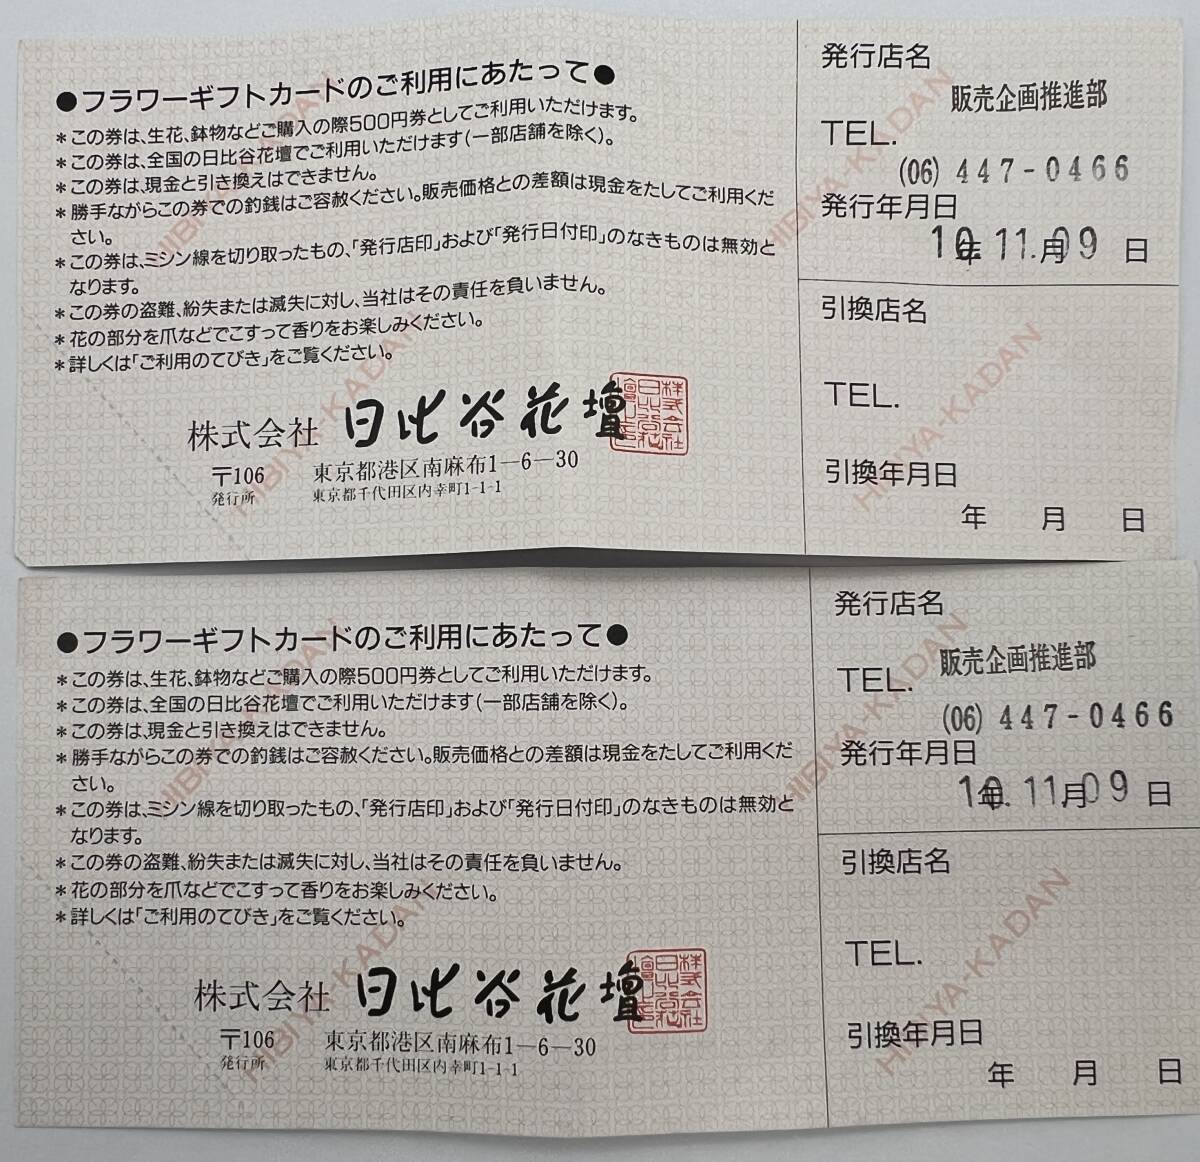 ●フラワーギフトカードのご利用にあたって●
＊この券は、生花、鉢物などご購入の際500円券としてご利用いただけます。
＊この券は、全国の日比谷花壇でご利用いただけます(一部店舗を除く)。
＊この券は、現金と引き換えはできません。
＊勝手ながらこの券での釣銭はご容赦ください。販売価格との差額は現金をたしてご利用くだ
さい。
＊この券は、ミシン線を切り取ったもの、「発行店印」および「発行日付印」のなきものは無効と
なります。
＊この券の盗難、紛失または滅失に対し、当社はその責任を負いません。
＊花の部分を爪などでこすって香りをお楽しみください。
＊詳しくは「ご利用のてびき」をご覧ください。
株式会社 日比谷花壇
〒106 東京都港区南麻布1－6－30
発行所 東京都千代田区内幸町1-1-1
HIBIYA-KADAN
HIBIYA-KADAN
発行店名
販売企画推進部
TEL.
(06) 447-0466
発行年月日
10年11.月09日
HIBIYA-KADAN
引換店名
TEL.
引換年月日
年 月 日
HIBIYA-KADAN
●フラワーギフトカードのご利用にあたって●
＊この券は、生花、鉢物などご購入の際500円券としてご利用いただけます。
＊この券は、全国の日比谷花壇でご利用いただけます(一部店舗を除く)。
＊この券は、現金と引き換えはできません。
＊勝手ながらこの券での釣銭はご容赦ください。販売価格との差額は現金をたしてご利用くだ
さい。
＊この券は、ミシン線を切り取ったもの、「発行店印」および「発行日付印」のなきものは無効と
なります。
＊この券の盗難、紛失または滅失に対し、当社はその責任を負いません。
＊花の部分を爪などでこすって香りをお楽しみください。
＊詳しくは「ご利用のてびき」をご覧ください。
株式会社 日比谷花壇
〒106 東京都港区南麻布1－6－30
発行所 東京都千代田区内幸町1-1-1
HIBIYA-KADAN
HIBIYA-KADAN
発行店名
販売企画推進部
TEL.
(06) 447-0466
発行年月日
10年.11月09日
HIBIYA-KADAN
引換店名
TEL.
引換年月日
年 月 日
HIBIYA-KADAN